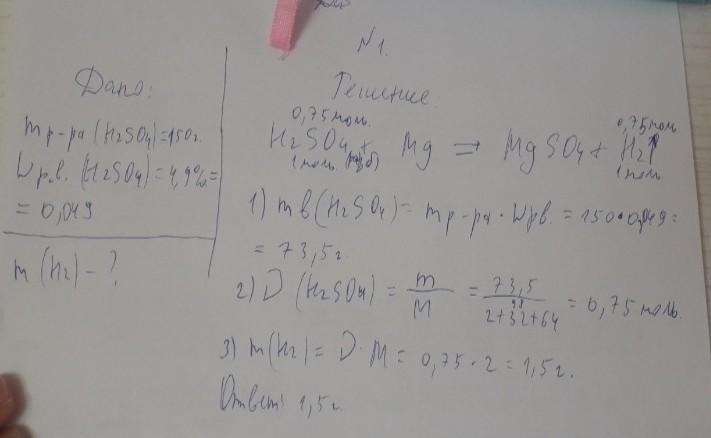 N1.
Дано:
mр-ра (H2SO4)=150г.
Wр.в. (H2SO4)=4,9%=
= 0,049
m (H2) - ?
Решение
0,75моль. 0,75моль
H2SO4 + Mg = MgSO4 + H2↑
1моль (разб) 1моль
1) mв(H2SO4)= mр-ра · Wрв. = 150·0,049=
= 73,5г.
2) D (H2SO4) = m/M = 73,5/2+32+64 = 0,75моль.
98
3) m(H2) = D · M = 0,75 · 2 = 1,5г.
Ответ: 1,5г.